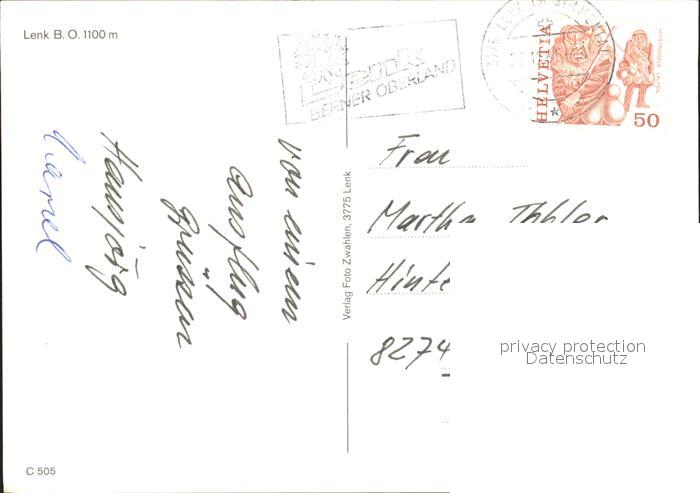 Lenk B. O. 1100 m
Lenk
BERNER OBERLAND
3775 LENK IM SIMMENTAL
HELVETIA
50
von einem
Ausflug
Grüssen
Hansjörg
Marcel
Verlag Foto Zwahlen, 3775 Lenk
Frau
Martha
Hinte
8274
privacy protection
Datenschutz
C 505